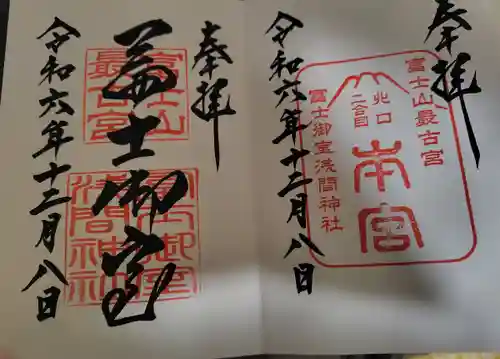 奉拝
北口
二合目
本宮
富士山最古宮
冨士御室浅間神社
令和六年十二月八日
奉拝
富士山
最古宮
冨士御室
浅間神社
冨士御室
令和六年十二月八日